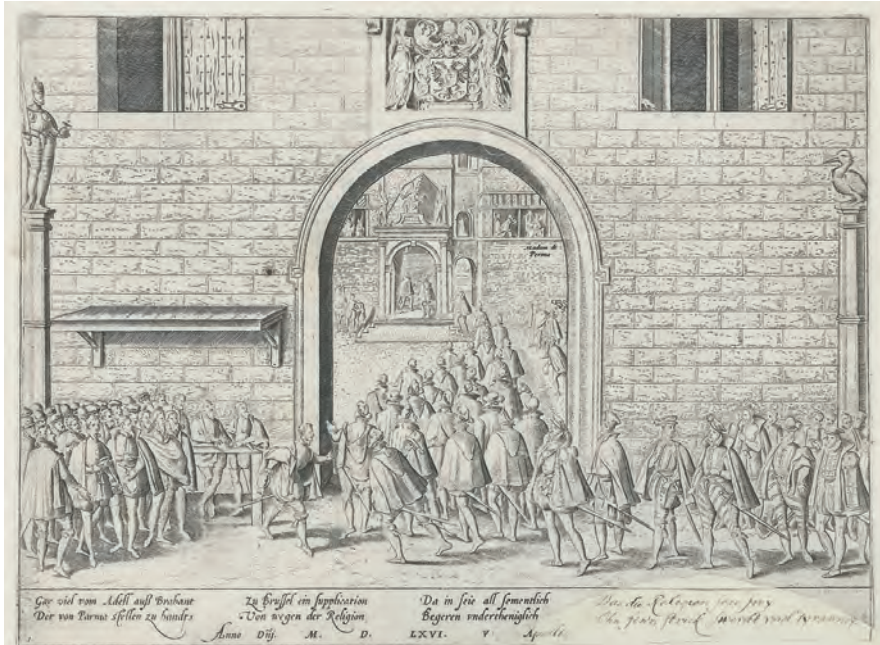 Madam de
Parma
Gar viel vom Adell auß Brabant
Der von Parma stellen zu handts
Zu Brussel ein supplication
Von wegen der Religion,
Da in seie all sementlich
Begeren vndertheniglich
Das die Religion
Anno Dñj. M. D. LXVI. V Aprilis.
1